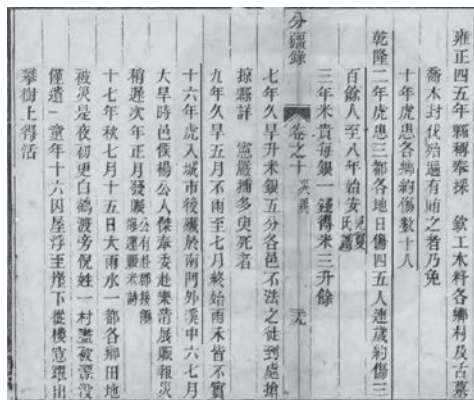 雍正四五年縣轉奉採 欽工木料各鄉村及古墓
喬木封伐殆遍有賄之者乃免
十年虎患各鄉約傷數十八
乾隆二年虎患三都各地日傷四五人連歲約傷三
百餘人至八年始安見夏氏譜
三年米貴每銀一錢得米三升餘
分疆錄
卷之十
災異
元
七年久旱升米銀五分各邑不法之徒到處搶
掠縣詳 憲嚴捕多與死者
九年久旱五月不雨至七月終始雨禾皆不實
十六年虎入城市後殲於南門外溪中六七月
大旱時邑侯楊公人傑奉委赴樂清展賑報災
稍遲次年正月發賑公有赴郡接海運賑米詩
十七年秋七月十五日大雨水一都各鄉田地
被災是夜初更白鶴渡旁倪姓一村盡被漂沒
僅遺一童年十六因屋浮至崖下從樓窓躍出
攀樹上得活